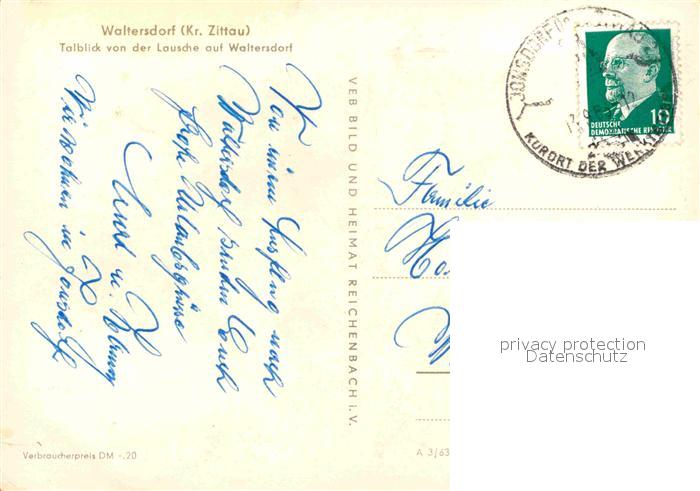 Waltersdorf (Kr. Zittau)
Talblick von der Lausche auf Waltersdorf
Von einem Ausflug nach
Waltersdorf senden Euch
große Urlaubsgrüße
u.
Wir wohnen in Jonsdorf
VEB BILD UND HEIMAT REICHENBACH i.V.
JONSDORF
KURORT DER WERKTÄTIGEN
10
DEUTSCHE
DEMOKRATISCHE REPUBLIK
Familie
privacy protection
Datenschutz
Verbraucherpreis DM -.20
A 3/63